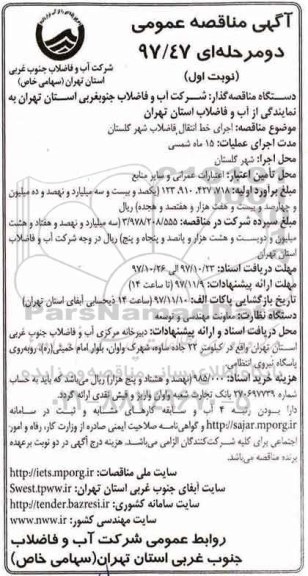 آگهی مناقصه عمومی
دومرحله‌ای ۹۷/۴۷
(نوبت اول)
شرکت آب و فاضلاب جنوب غربی
استان تهران (سهامی خاص)
دستگاه مناقصه‌گذار: شرکت آب و فاضلاب جنوبغربی استان تهران به
نمایندگی از آب و فاضلاب استان تهران
موضوع مناقصه: اجرای خط انتقال فاضلاب شهر گلستان
مدت اجرای عملیات: ۱۵ ماه شمسی
محل اجرا: شهر گلستان
محل تأمین اعتبار: اعتبارات عمرانی و سایر منابع
مبلغ برآورد اولیه: ۱۲۳،۹۱۰،۴۲۷،۷۱۸ (یکصد و بیست و سه میلیارد و نهصد و ده میلیون
و چهارصد و بیست و هفت هزار و هفتصد و هجده) ریال
مبلغ سپرده شرکت در مناقصه: ۳/۹۷۸/۲۰۸/۵۵۵ (سه میلیارد و نهصد و هفتاد و هشت
میلیون و دویست و هشت هزار و پانصد و پنجاه و پنج) ریال در وجه شرکت آب و فاضلاب
استان تهران
مهلت دریافت اسناد: ۹۷/۱۰/۲۳ الی ۹۷/۱۰/۲۶
مهلت ارائه پیشنهادات: ۹۷/۱۱/۹ (تا ساعت ۱۴)
تاریخ بازگشایی پاکات الف: ۹۷/۱۱/۱۰ (ساعت ۱۴ ذیحسابی آبفای استان تهران)
دستگاه نظارت: معاونت مهندسی و توسعه
محل دریافت اسناد و ارائه پیشنهادات: دبیرخانه مرکزی آب و فاضلاب جنوب غربی
استان تهران واقع در کیلومتر ۲۳ جاده ساوه، شهرک واوان، بلوار امام خمینی(ره)، روبه‌روی
پاسگاه نیروی انتظامی
هزینه خرید اسناد: ۹۸۵/۰۰۰ (نهصد و هشتاد و پنج هزار) ریال می‌باشد که باید به حساب
شماره ۲۷۰۶۹۷۷۳۹ بانک تجارت شعبه واوان واریز و فیش نقدی ارائه گردد.
دارا بودن رتبه ۴ آب، سابقه کارهای مشابه و ثبت در سامانه
http://sajar.mporg.ir و گواهی‌نامه صلاحیت ایمنی صادره از وزارت کار، رفاه و امور
اجتماعی برای کلیه شرکت‌کنندگان الزامی می‌باشد. هزینه درج آگهی در دو نوبت برعهده
برنده مناقصه می‌باشد.
سایت ملی مناقصات: http://iets.mporg.ir
سایت آبفای جنوب غربی استان تهران: Swest.tpww.ir
سایت سامانه کشوری: http://tender.bazresi.ir
سایت مهندسی کشور: www.nww.ir
روابط عمومی شرکت آب و فاضلاب
جنوب غربی استان تهران(سهامی خاص)